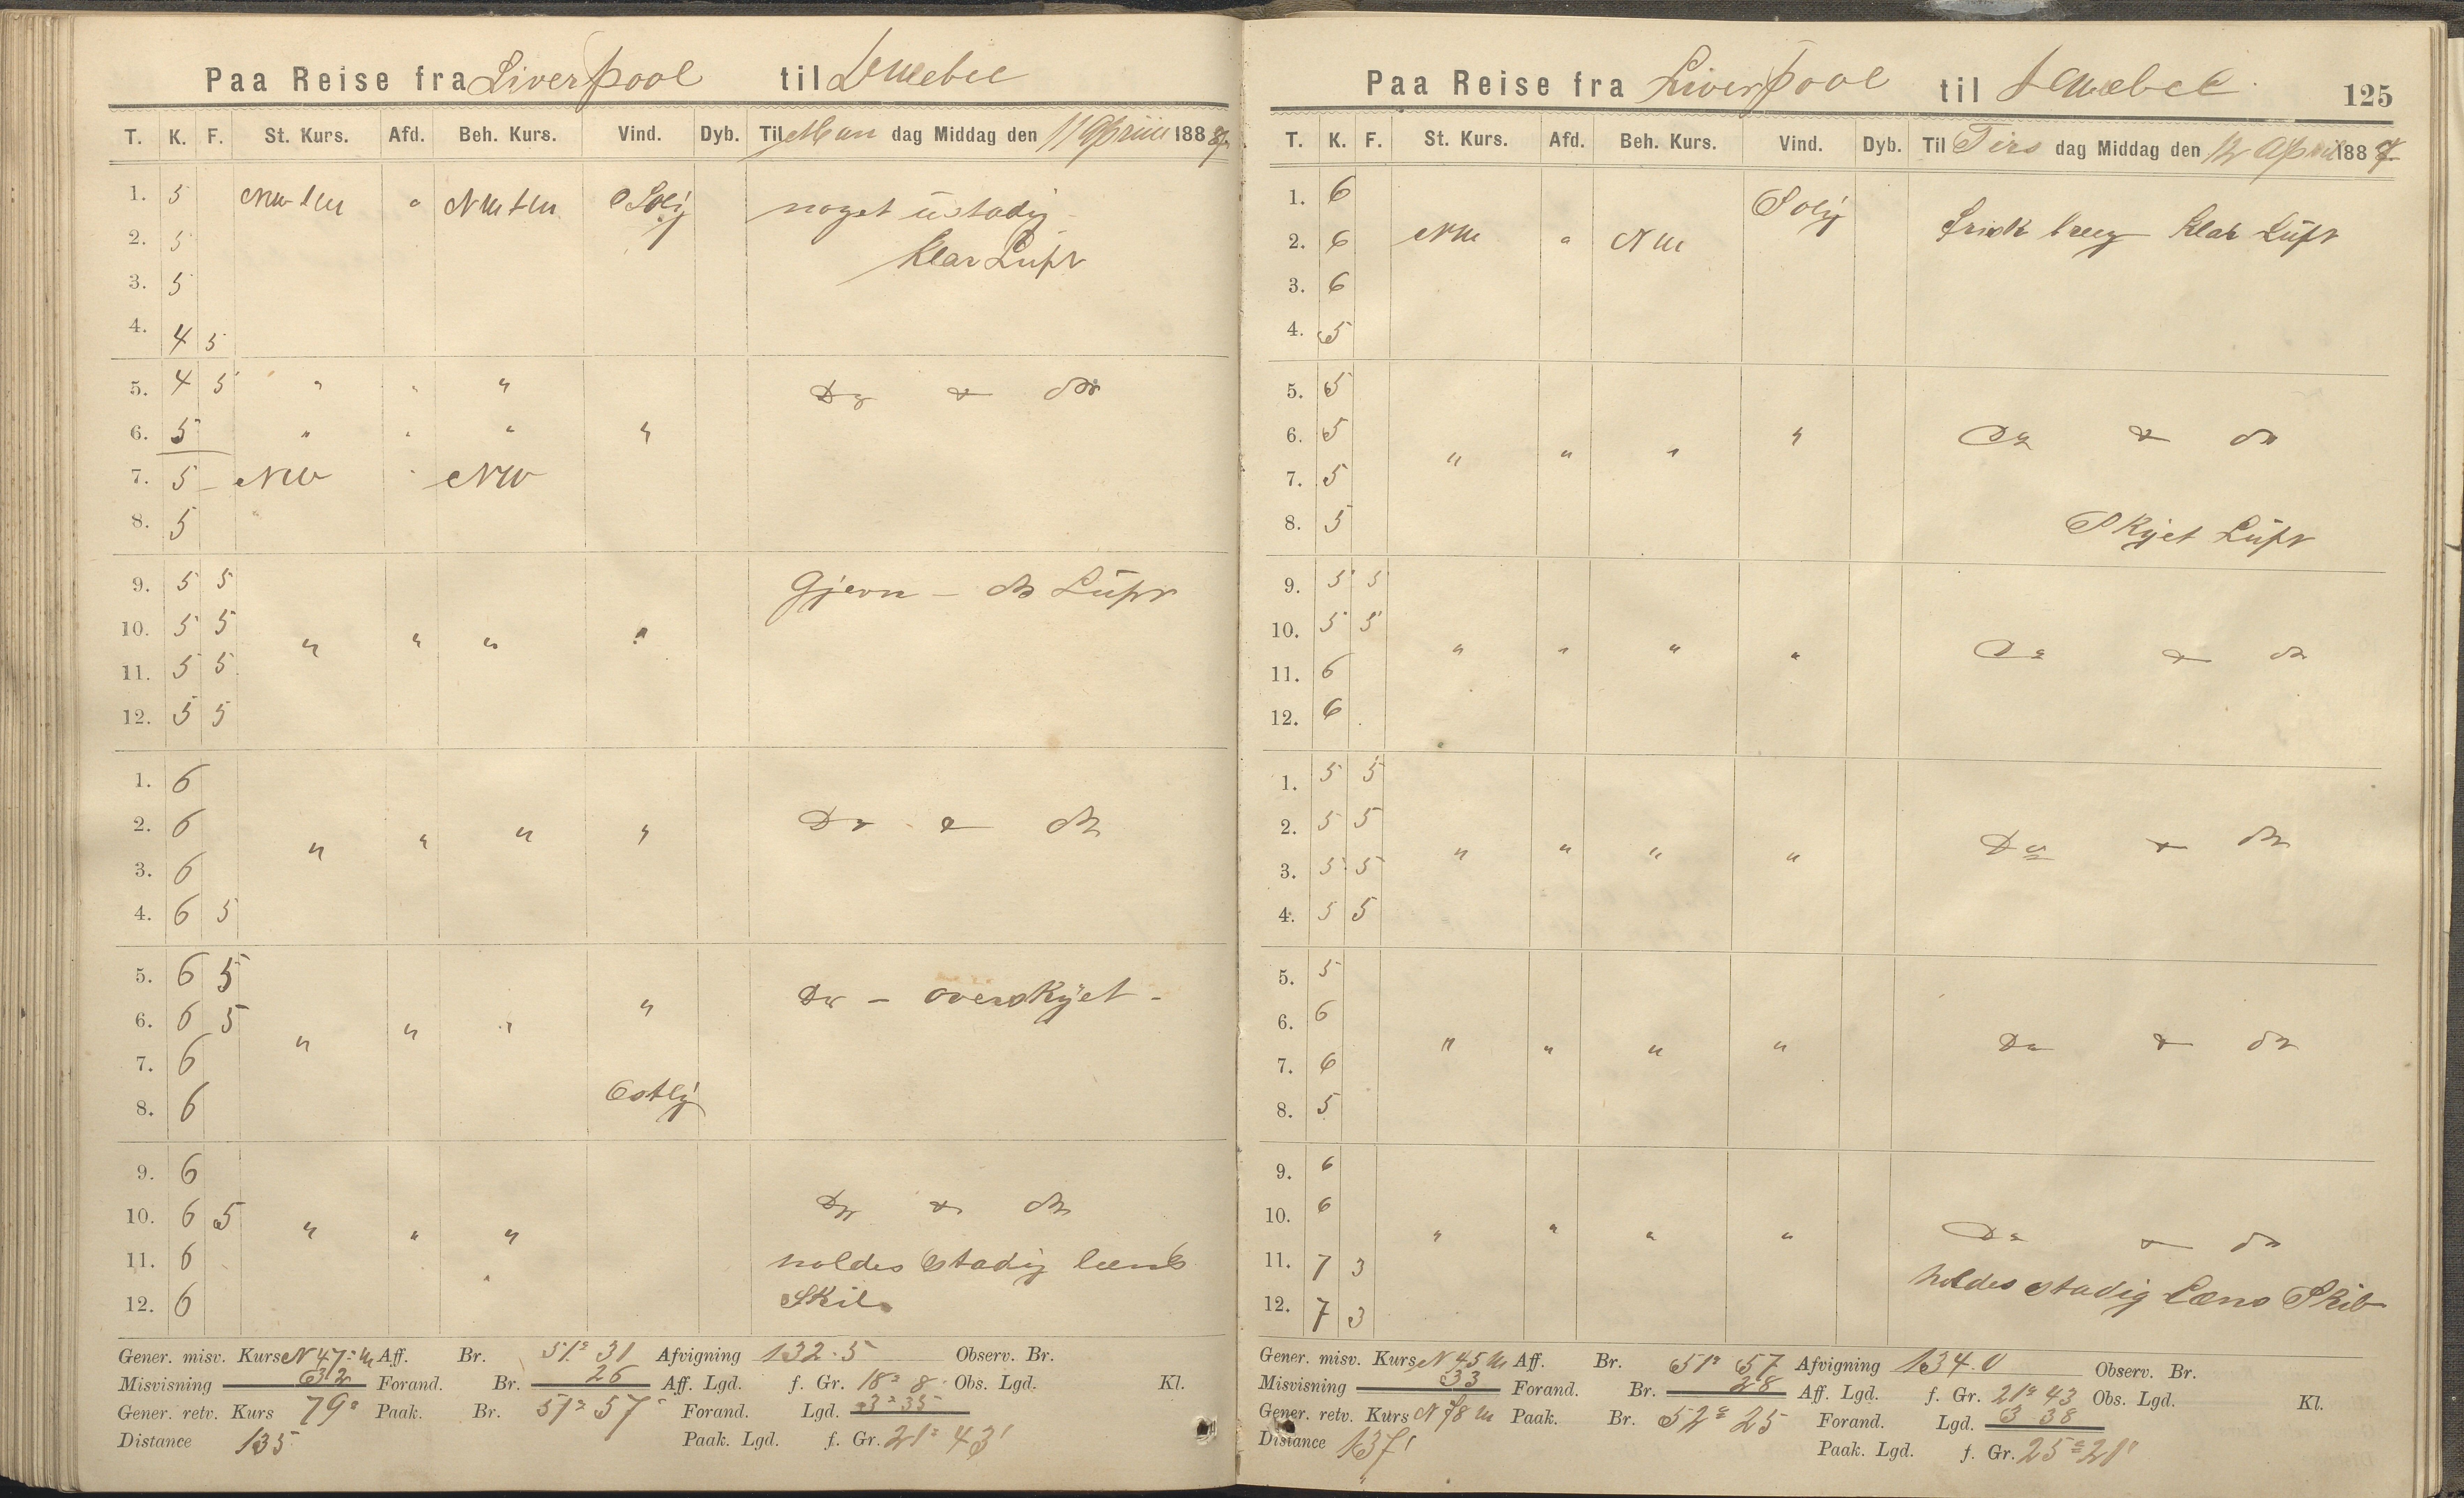 Paa Reise fra Liverpool til Quebec
T. K. F. St. Kurs. Afd. Beh. Kurs. Vind. Dyb. Til Man dag Middag den 11 April 1887
1. 5 " Sølig noget ustadig
2. 5 klar Luft
3. 5
4. 4 5
5. 4 5 " " " Do & do
6. 5 " " " "
7. 5 NW " NW
8. 5
9. 5 5 Gjevn - do Luft
10. 5 5 " " " "
11. 5 5
12. 5 5
1. 6
2. 6 " " " " Do & do
3. 6
4. 6 5
5. 6 5 " Do - overskyet -
6. 6 5 " " "
7. 6
8. 6 Ostlig
9. 6
10. 6 5 " " " Do & do
11. 6 holdes stadig læns
12. 6 Skib
Gener. misv. Kurs N 47° W Aff. Br. 51° 31 Afvigning 132.5 Observ. Br.
Misvisning 32 Forand. Br. 26 Aff. Lgd. f. Gr. 18° 8 Obs. Lgd. Kl.
Gener. retv. Kurs 79° Paak. Br. 51° 57 Forand. Lgd. 3° 35
Distance 135 Paak. Lgd. f. Gr. 21° 43'
Paa Reise fra Liverpool til Quebec 125
T. K. F. St. Kurs. Afd. Beh. Kurs. Vind. Dyb. Til Tirs dag Middag den 12 April 1887
1. 6 Sølig
2. 6 NW " NW Frisk klar Luft
3. 6
4. 5
5. 5
6. 5 " " " " Do & do
7. 5
8. 5 Skyet Luft
9. 5 5
10. 5 5 " " " " Do & do
11. 6
12. 6
1. 5 5
2. 5 5 " " " " Do & do
3. 5 5
4. 5 5
5. 5
6. 6 " " " " Do & do
7. 6
8. 5
9. 6
10. 6 " " " " Do & do
11. 7 3 holdes stadig Læns Skib
12. 7 3
Gener. misv. Kurs N 45 W Aff. Br. 51° 57 Afvigning 134.0 Observ. Br.
Misvisning 33 Forand. Br. 28 Aff. Lgd. f. Gr. 21° 43 Obs. Lgd. Kl.
Gener. retv. Kurs N 78 W Paak. Br. 52° 25 Forand. Lgd. 3 38
Distance 137' Paak. Lgd. f. Gr. 25° 21'